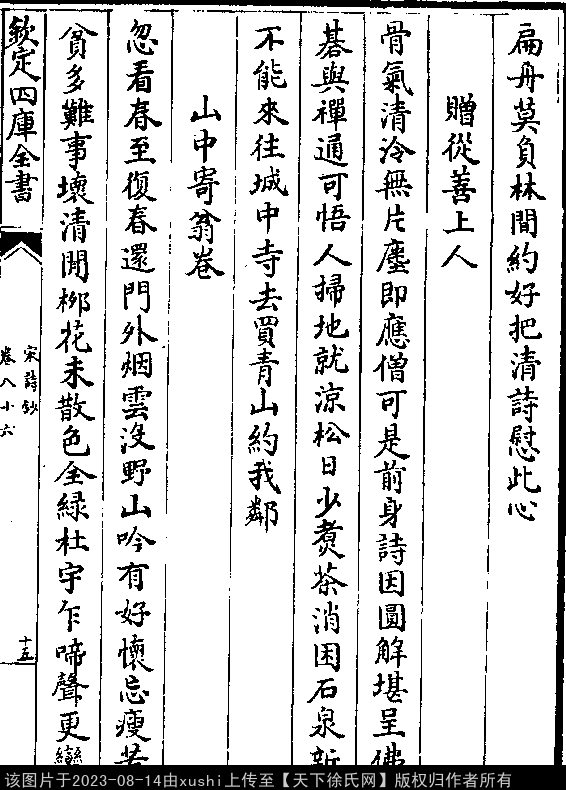 扁舟莫負林間約好把清詩慰此心
贈從善上人
骨氣清泠無片塵即應僧可是前身詩因圓解堪呈佛
碁與禪通可悟人掃地就涼松日少煑茶消困石泉新
不能來往城中寺去買青山約我鄰
山中寄翁卷
忽看春至復春還門外烟雲没野山吟有好懷忘瘦苦
貧多難事壞清閒桞花未散色全緑杜宇乍啼聲更蠻
欽定四庫全書
宋詩鈔
卷八十六
十五
该图片于2023-08-14由xushi上传至【天下徐氏网】版权归作者所有